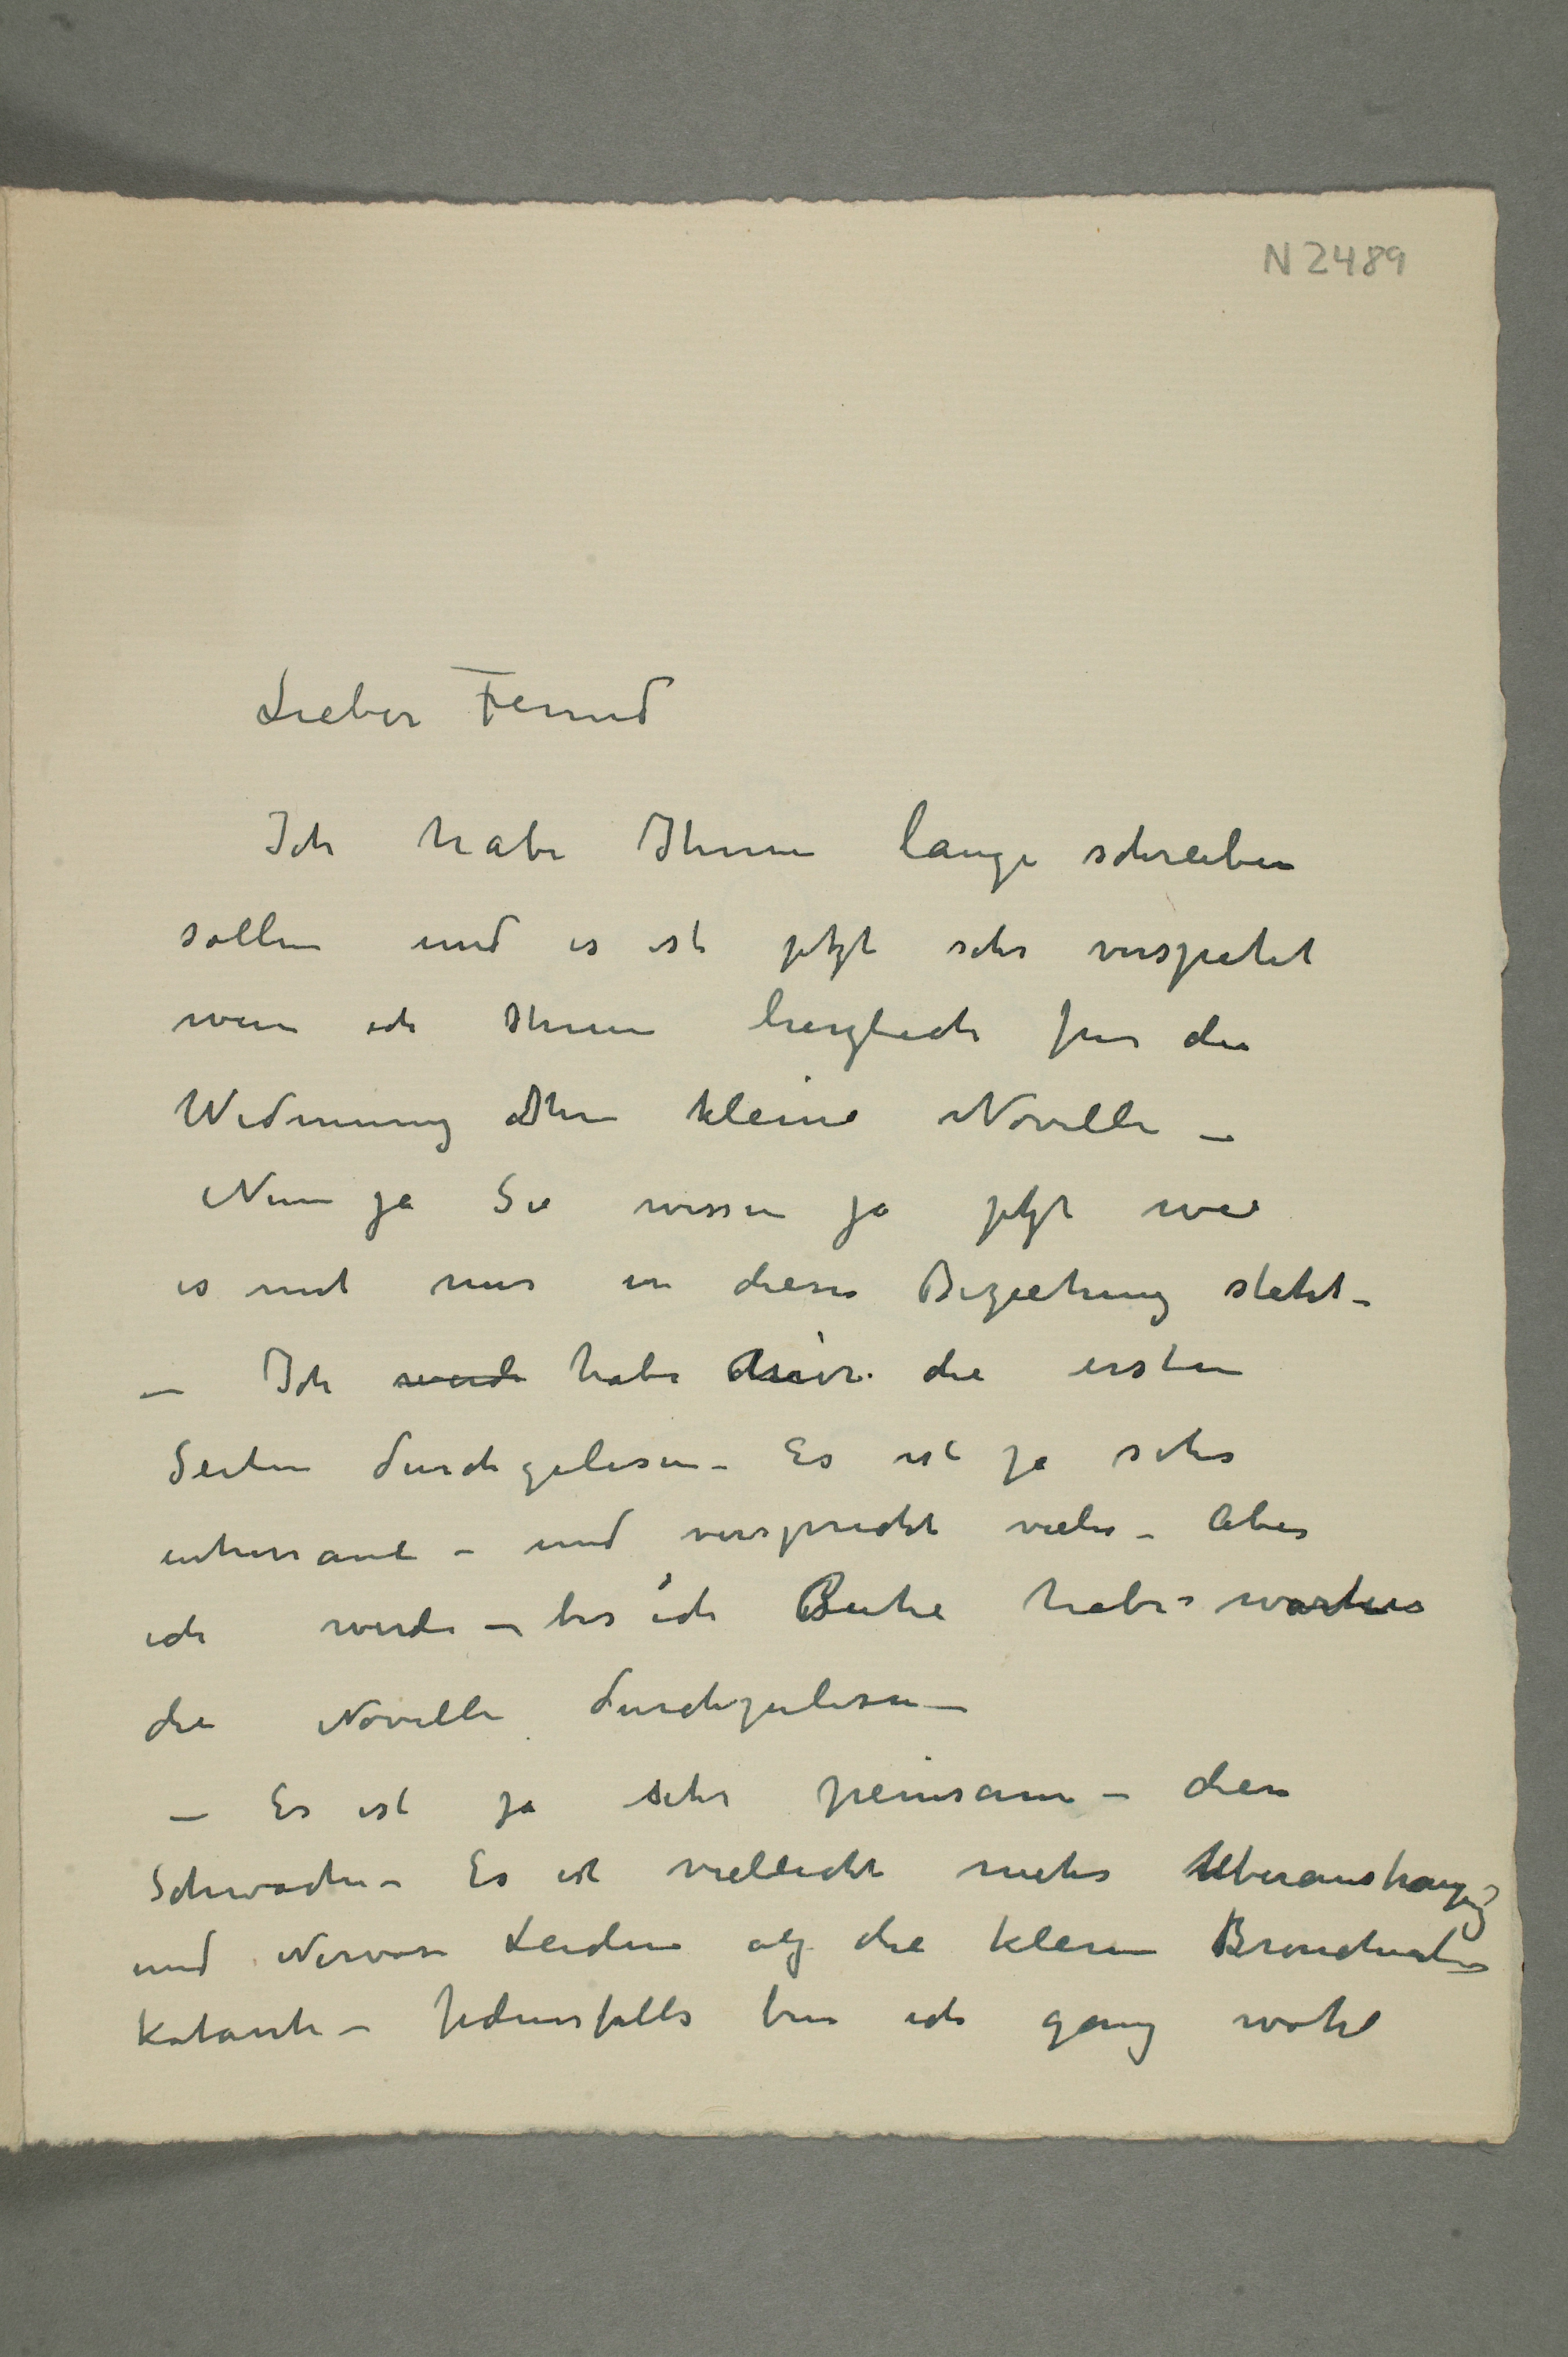 N 2489
Lieber Freund
Ich habe Ihnen lange schreiben
sollen und es ist jetzt sehr verspätet
wenn ich Ihnen herzlich für die
Widmung Ihre kleine Novelle –
Nun ja Sie wissen ja jetzt wie
es mit mir in dieser Beziehung steht –
– Ich werde habe die ersten
Seiten durchgelesen – Es ist ja sehr
interessant – und verspricht vieles – Aber
ich werde – bis ich Ruhe habe – warten
die Novelle durchzulesen –
– Es ist ja sehr peinsam – diese
Schwäche – Es ist vielleicht mehr Uberanstrangug
und Nervöse Leiden als die kleine Bronchial
Katarrh – Jedensfalls bin ich ganz wohl